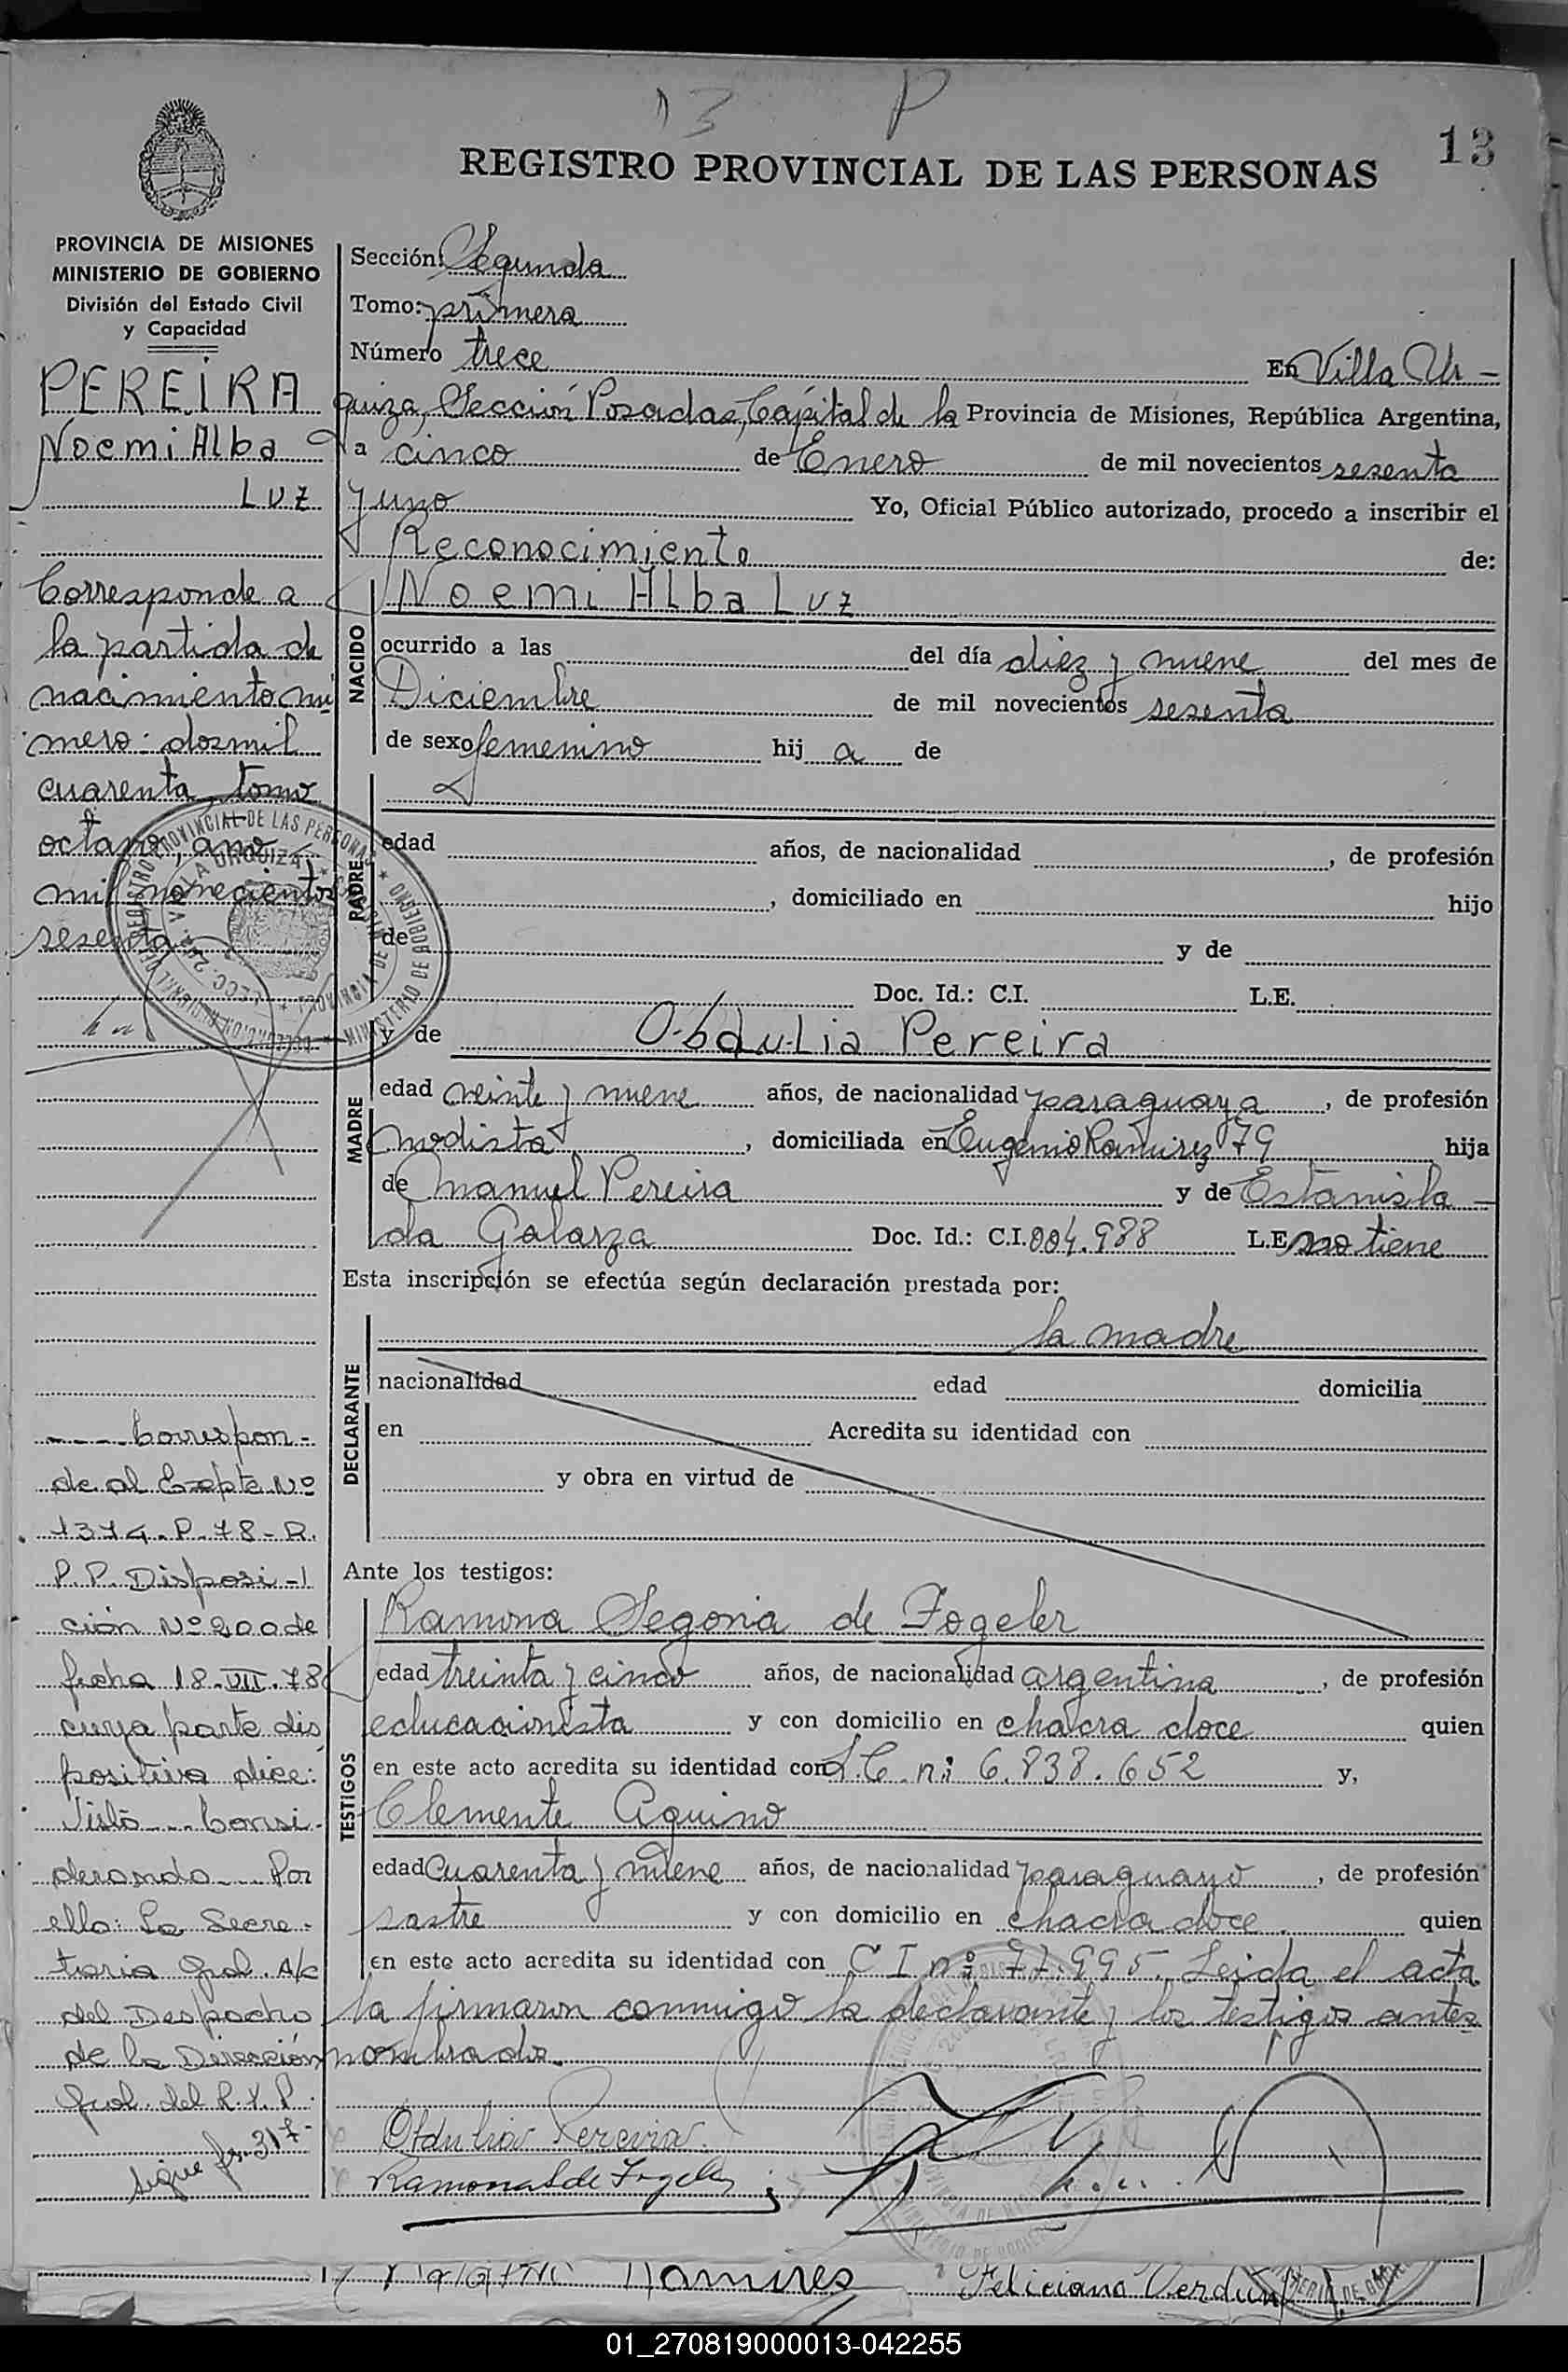 13 P
13
REGISTRO PROVINCIAL DE LAS PERSONAS
PROVINCIA DE MISIONES
MINISTERIO DE GOBIERNO
División del Estado Civil
y Capacidad
PEREIRA
Noemi Alba
Luz
Corresponde a
la partida de
nacimiento nu
mero: dosmil
cuarenta, tomo
octavo, ano
mil novecientos
sesenta
Sección: Segunda
Tomo: primera
Número trece En Villa Ur-
quiza, Sección Posadas, Capital de la Provincia de Misiones, República Argentina,
a cinco de Enero de mil novecientos sesenta
y uno Yo, Oficial Público autorizado, procedo a inscribir el
Reconocimiento de:
NACIDO
Noemi Alba Luz
ocurrido a las del día diez y nueve del mes de
Diciembre de mil novecientos sesenta
de sexo femenino hij a de
PADRE
edad años, de nacionalidad , de profesión
, domiciliado en hijo
de y de
Doc. Id.: C.I. L.E.
MADRE
y de Obdulia Pereira
edad veinte y nueve años, de nacionalidad paraguaya, de profesión
modista, domiciliada en Eugenio Ramirez 79 hija
de Manuel Pereira y de Estanisla-
da Galarza Doc. Id.: C.I. 004.988 L.E. no tiene
Esta inscripción se efectúa según declaración prestada por:
la madre
DECLARANTE
nacionalidad edad domicilia
en Acredita su identidad con
y obra en virtud de
Ante los testigos:
TESTIGOS
Ramona Segovia de Fogeler
edad treinta y cinco años, de nacionalidad argentina, de profesión
educacionista y con domicilio en chacra doce quien
en este acto acredita su identidad con L.C. nº 6.838.652 y,
Clemente Aquino
edad cuarenta y nueve años, de nacionalidad paraguayo, de profesión
sastre y con domicilio en chacra doce quien
en este acto acredita su identidad con C I nº 77.995. Leida el acta
la firmaron conmigo la declarante y los testigos antes
nombrados.
Obdulia Pereira
Ramona S de Fogeler
---- Correspon-
de al Expte Nº
1374-P-78-R.
P.P. Disposi-
ción Nº 200 de
fecha 18-VII-78
cuya parte dis
positiva dice:
Visto --- Consi-
derando --- Por
ello: La Secre-
taria Gral. A/c
del Despacho
de la Dirección
Gral. del R.P.P.
sigue fs. 317-
Ramires Feliciano Verdun
01_270819000013-042255